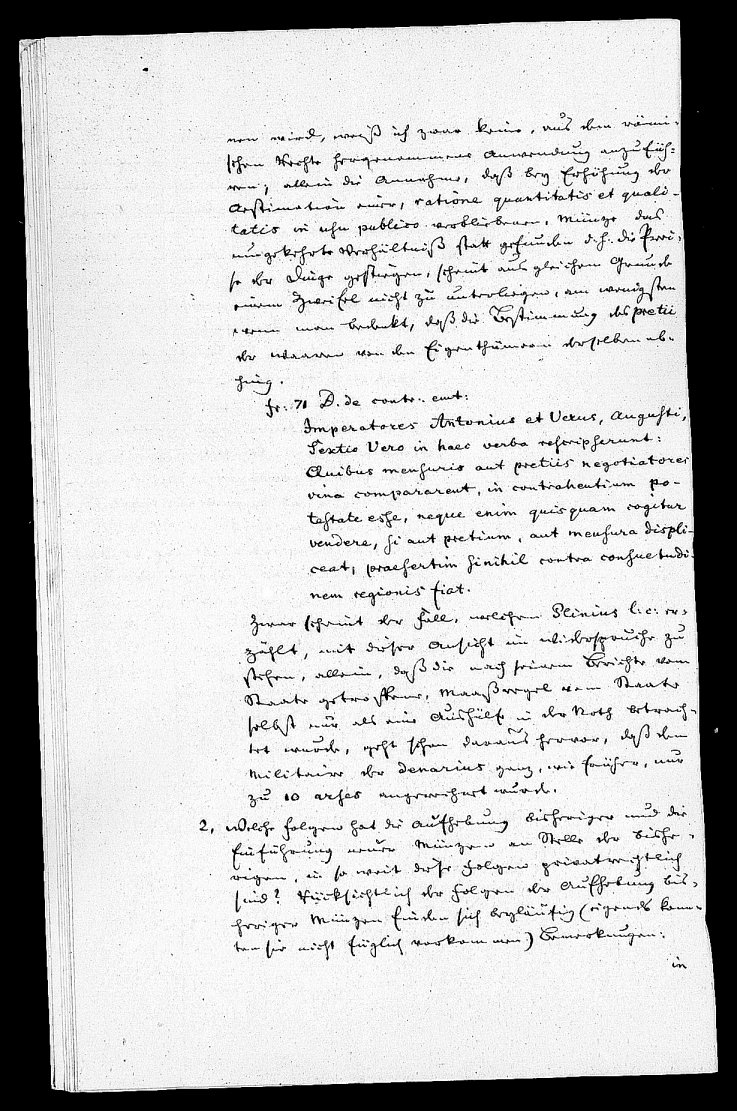 nen wird, weiß ich zwar keine, aus dem römi-
schen Rechte hergenommene Anwendung anzufüh-
ren; allein die Annahme, daß bey Erhöhung der
Aestimation einer, ratione quantitatis et quali-
tatis in usu publico verbliebenen, Münze das
umgekehrte Verhältniß statt gefunden d. h. die Prei-
se der Dinge gestiegen, scheint aus gleichem Grunde
einem Zweifel nicht zu unterliegen, am wenigsten
wenn man bedenkt, daß die Bestimmung des pretii
der Waaren von den Eigenthümern derselben ab-
hing.
fr. 71 D. de contr. emt:
Imperatores Antonius et Verus, Augusti,
Sextio Vero in haec verba rescripserunt:
Quibus mensuris aut pretiis negotiatores
vina compararent, in contrahentium po-
testate esse, neque enim quisquam cogitur
vendere, si aut pretium, aut mensura displi-
ceat, praesertim si nihil contra consuetudi-
nem regionis fiat.
Zwar scheint der Fall, welchen Plinius l: c: er-
zählt, mit dieser Ansicht im Widerspruche zu
stehen, allein, daß die nach seinem Berichte vom
Staate getroffene, Maaßregel vom Staate
selbst nur als eine Aushülfe in der Noth betrach-
tet wurde, geht schon daraus hervor, daß dem
Militaire der denarius ganz, wie früher, nur
zu 10 asses angerechnet wurde.
2, Welche Folgen hat die Aufhebung bisheriger und die
Einführung neuer Münzen an Stelle der bishe-
rigen, in so weit diese Folgen privatrechtlich
sind? Rücksichtlich der Folgen der Aufhebung bis-
heriger Münzen finden sich beyläufig (eigends konn-
ten sie nicht füglich vorkommen) Bemerkungen:
in